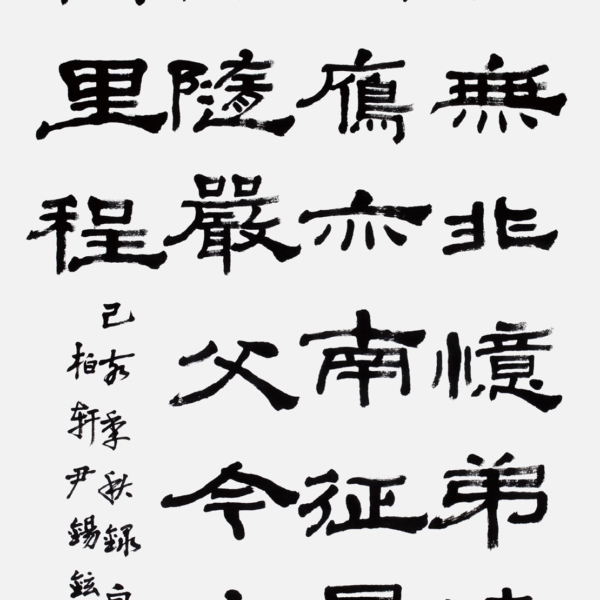 無非憶弟
鴈亦南征
隨嚴父今
里程
己亥季秋錄
柏軒尹錫鉉